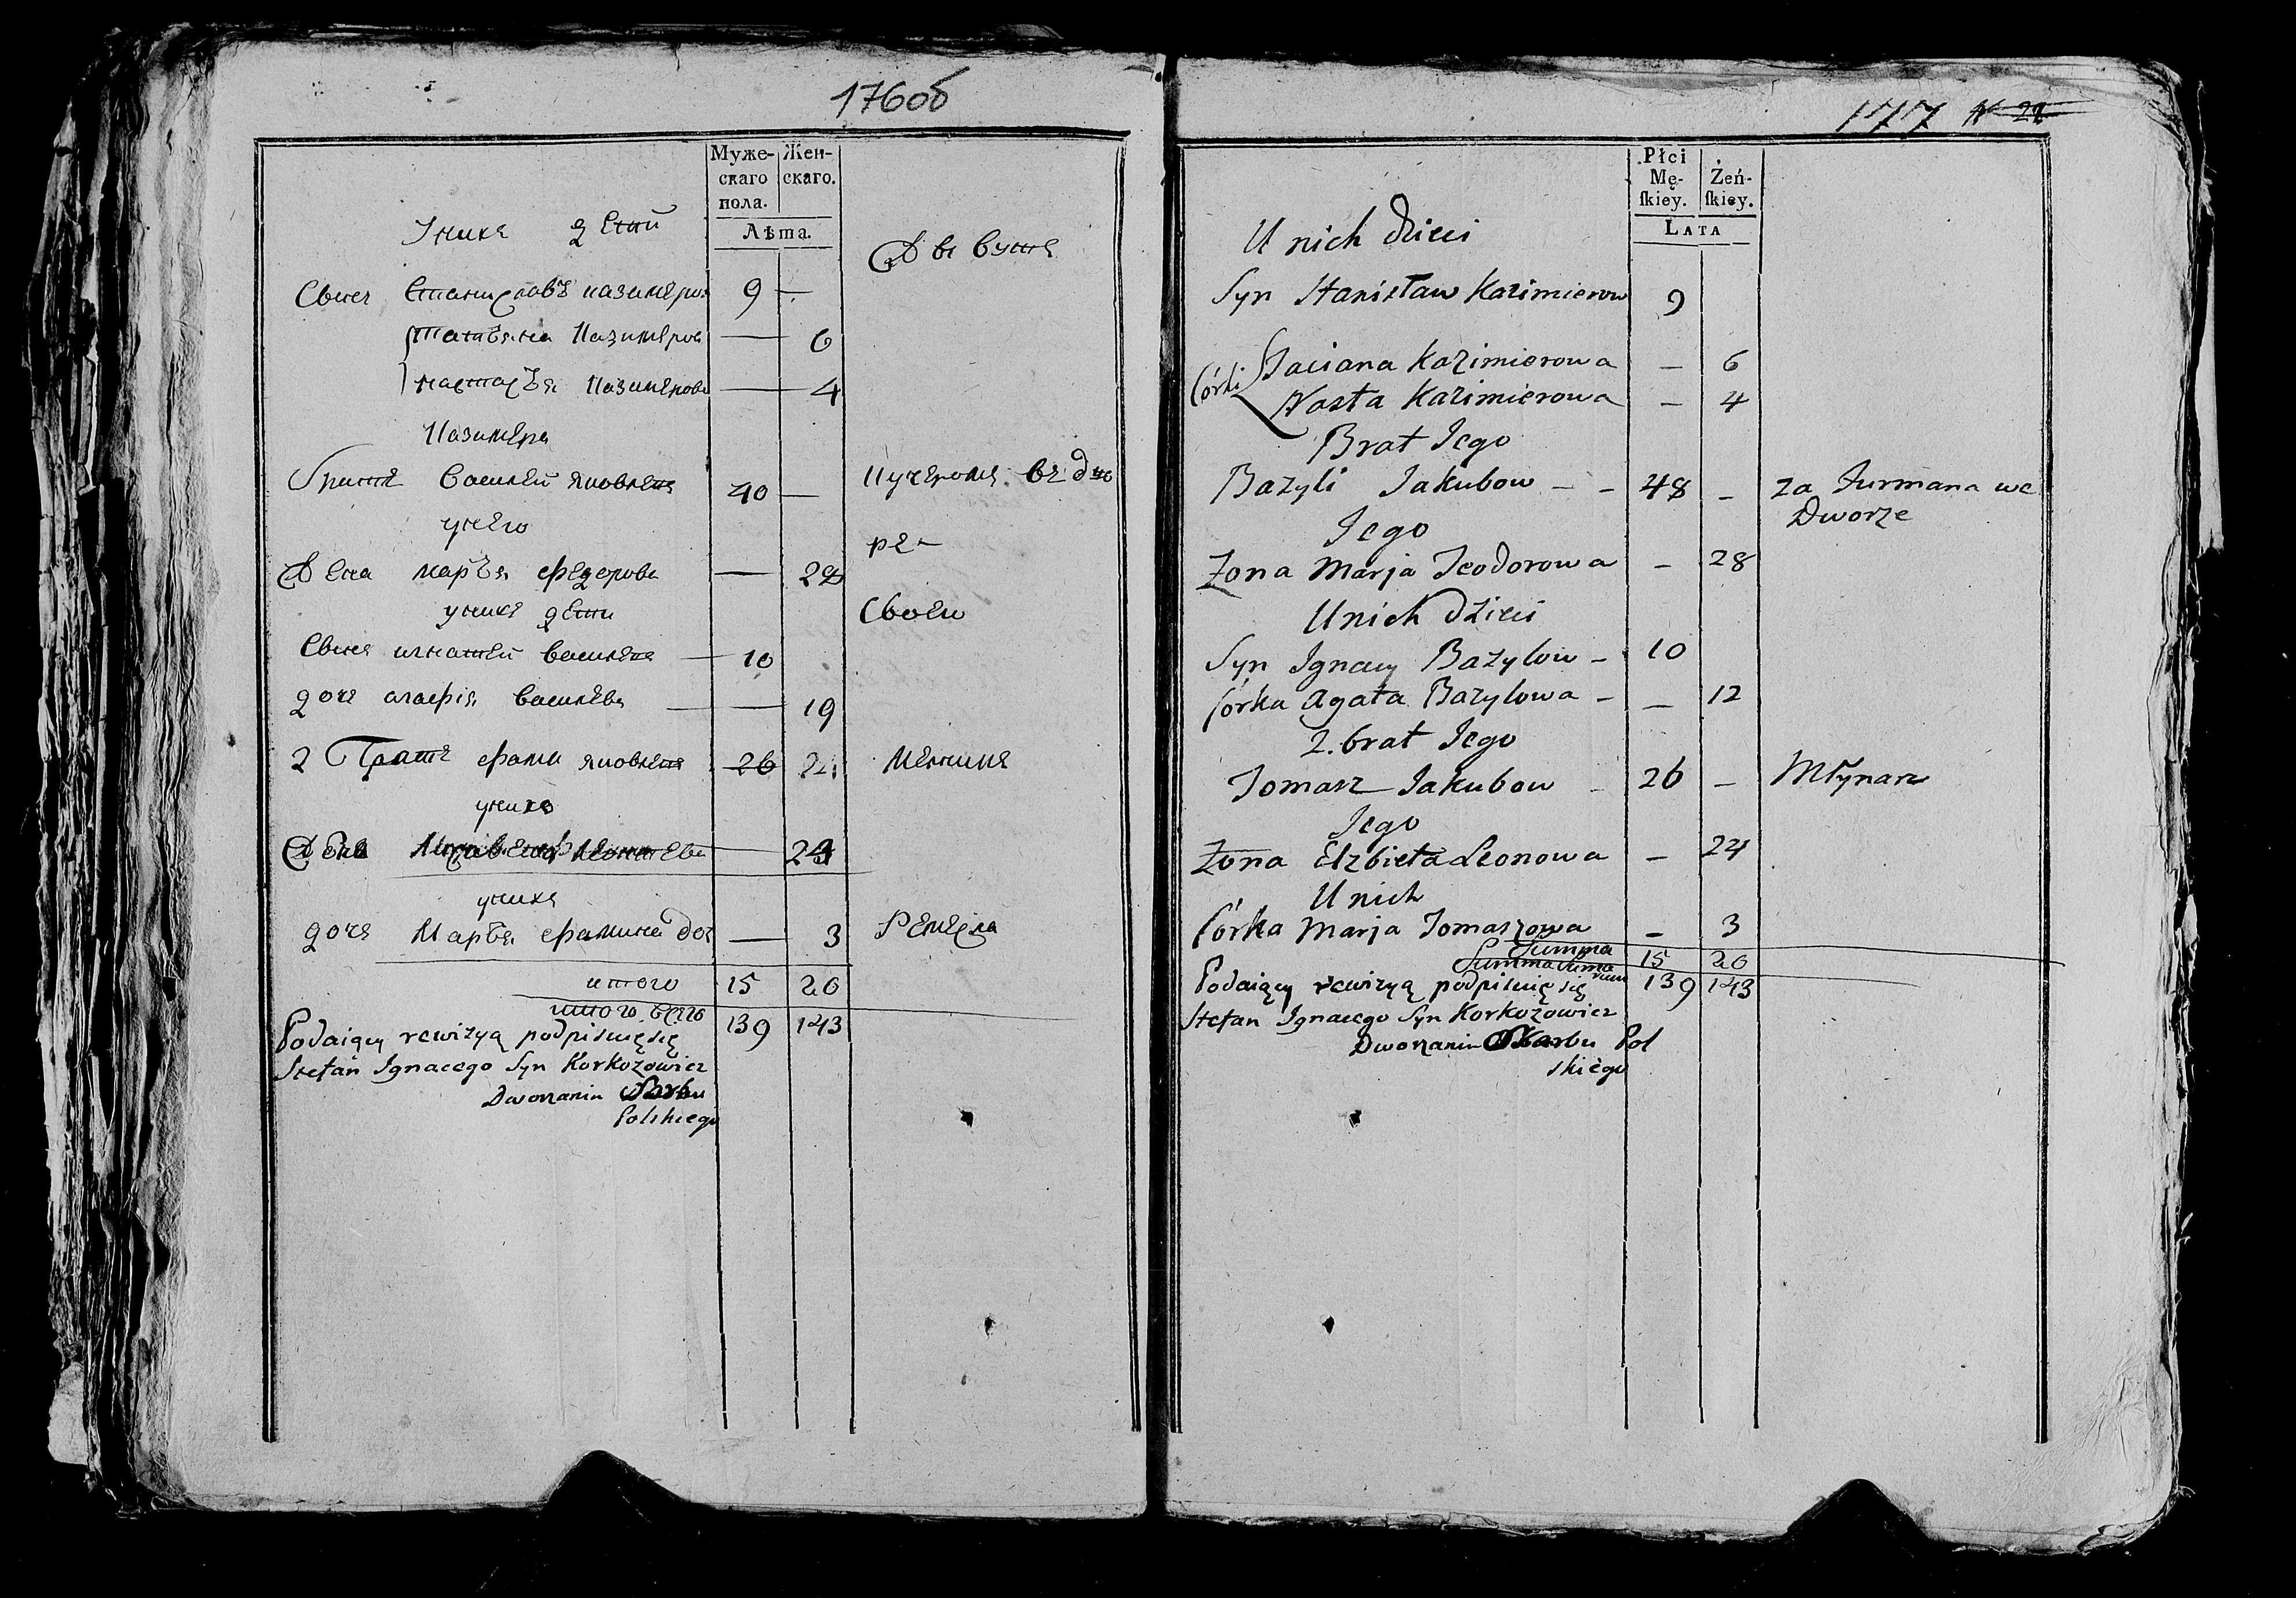 176об
Муже- Жен-
скаго скаго.
пола.
Лѣта.
Уних дети
Станиславъ казимеров 9 —
татьяна казимеров — 6
настасья казимерова — 4
казимера
василей яковлев 40 — кучером. въ дво
у него
ре
Жена марья федерова — 28
уних дети
своем
Сын игнатей василев — 10
доч агафия василева — — 19
2 Брат фами яковлев 26
уних
Жена
уних
доч Марья фамина доч — 3 Ремесла
итого 15 20
итого всего 139 143
Podaiący rewizyą podpisuię się
Stefan Ignacego Syn Korkozowicz
Dworzanin Skarbu
Polskiego
177 N 22
Płci
Mę- Żeń-
ſkiey. ſkiey.
LATA
U nich dzieci
Syn Stanisław Kazimierow 9
Córki Taciana Kazimierowa — 6
Nasta Kazimierowa — 4
Brat Jego
Bazyli Jakubow — — 48 — za furmana we
Dworze
Jego
Żona Marja Teodorowa — 28
U nich dzieci
Syn Ignacy Bazylow — 10
Córka Agata Bazylowa — — 12
2. brat Jego
Tomasz Jakubow — 26 — Młynarz
Jego
Żona Elzbieta Leonowa — 24
U nich
Córka Marja Tomaszowa — 3
Summa 15 20
Summa Summa rum 139 143
Podaiący rewizyą podpisuię się
Stefan Ignacego Syn Korkozowicz
Dworzanin Skarbu Pol
skiego